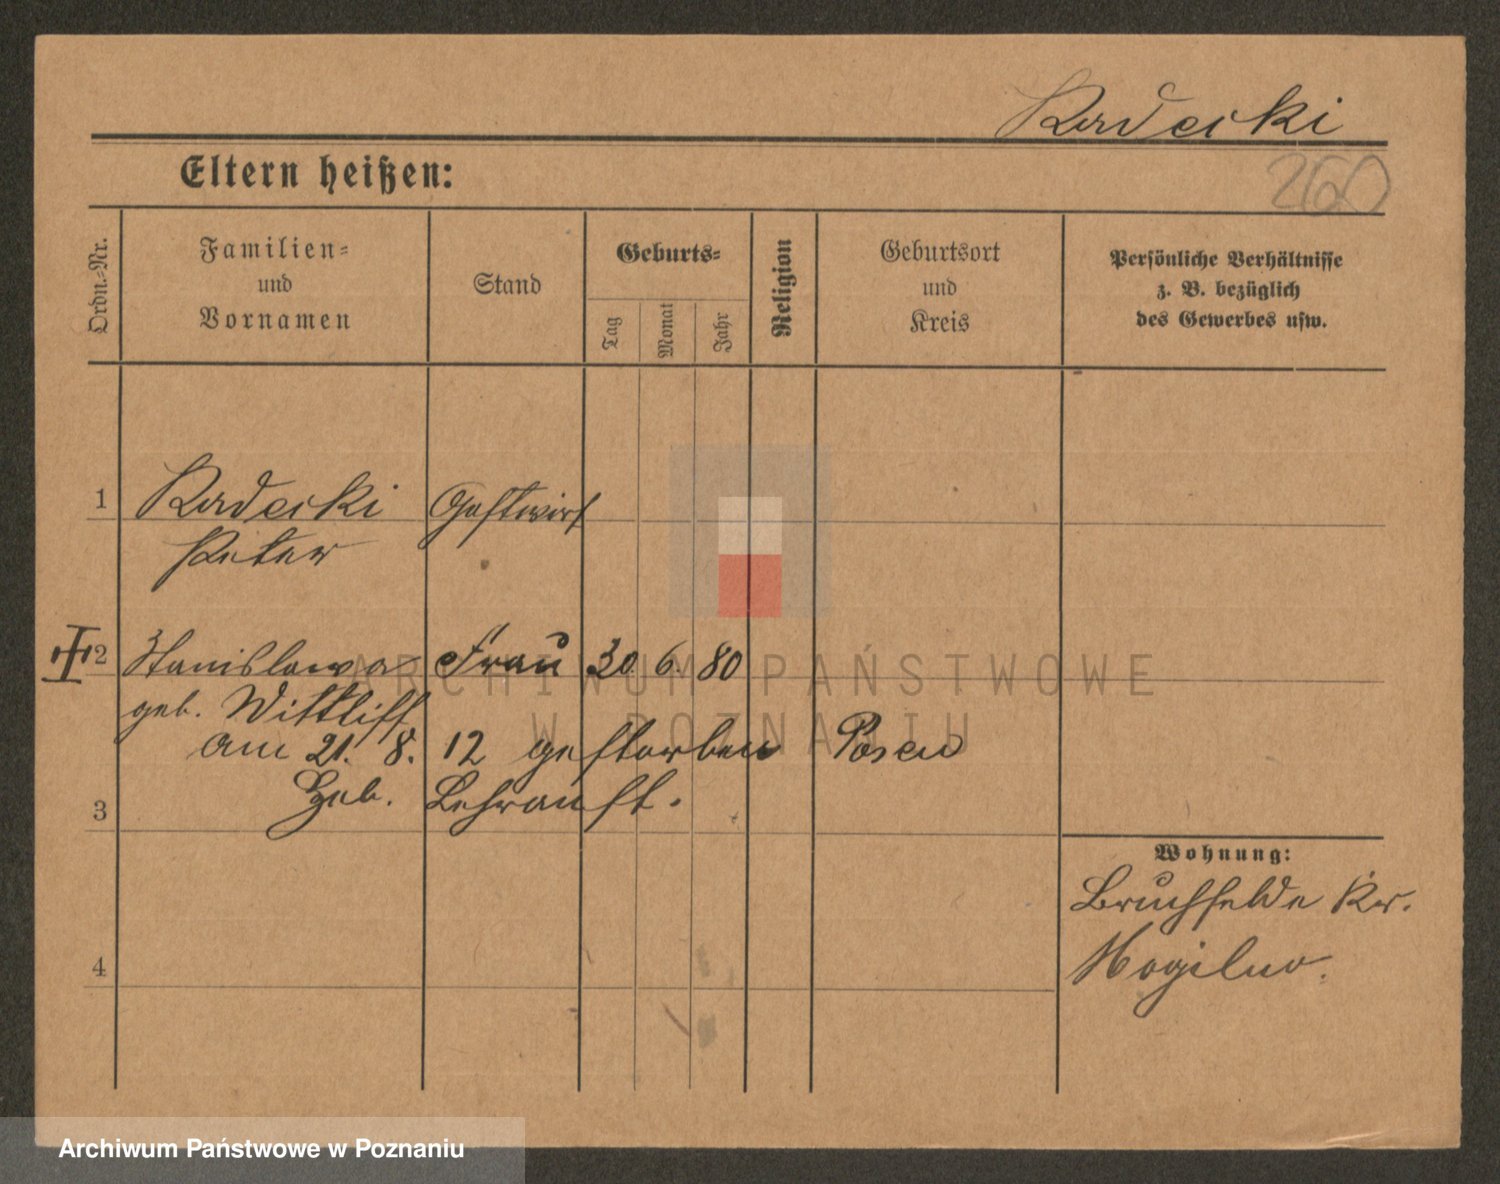 Radecki
260
Eltern heißen:
Ordn.-Nr.
Familien-
und
Vornamen
Stand
Geburts-
Tag
Monat
Jahr
Religion
Geburtsort
und
Kreis
Persönliche Verhältnisse
z. B. bezüglich
des Gewerbes usw.
1 Radecki Gastwirt
Peter
2 Stanislawa Frau 30. 6. 80
geb. Wittliff
am 21. 8. 12 gestorben Posen
3 Heb. Lehranst.
4
Wohnung:
Bruchfelde Kr.
Mogilno.
ARCHIWUM PAŃSTWOWE
W POZNANIU
Archiwum Państwowe w Poznaniu